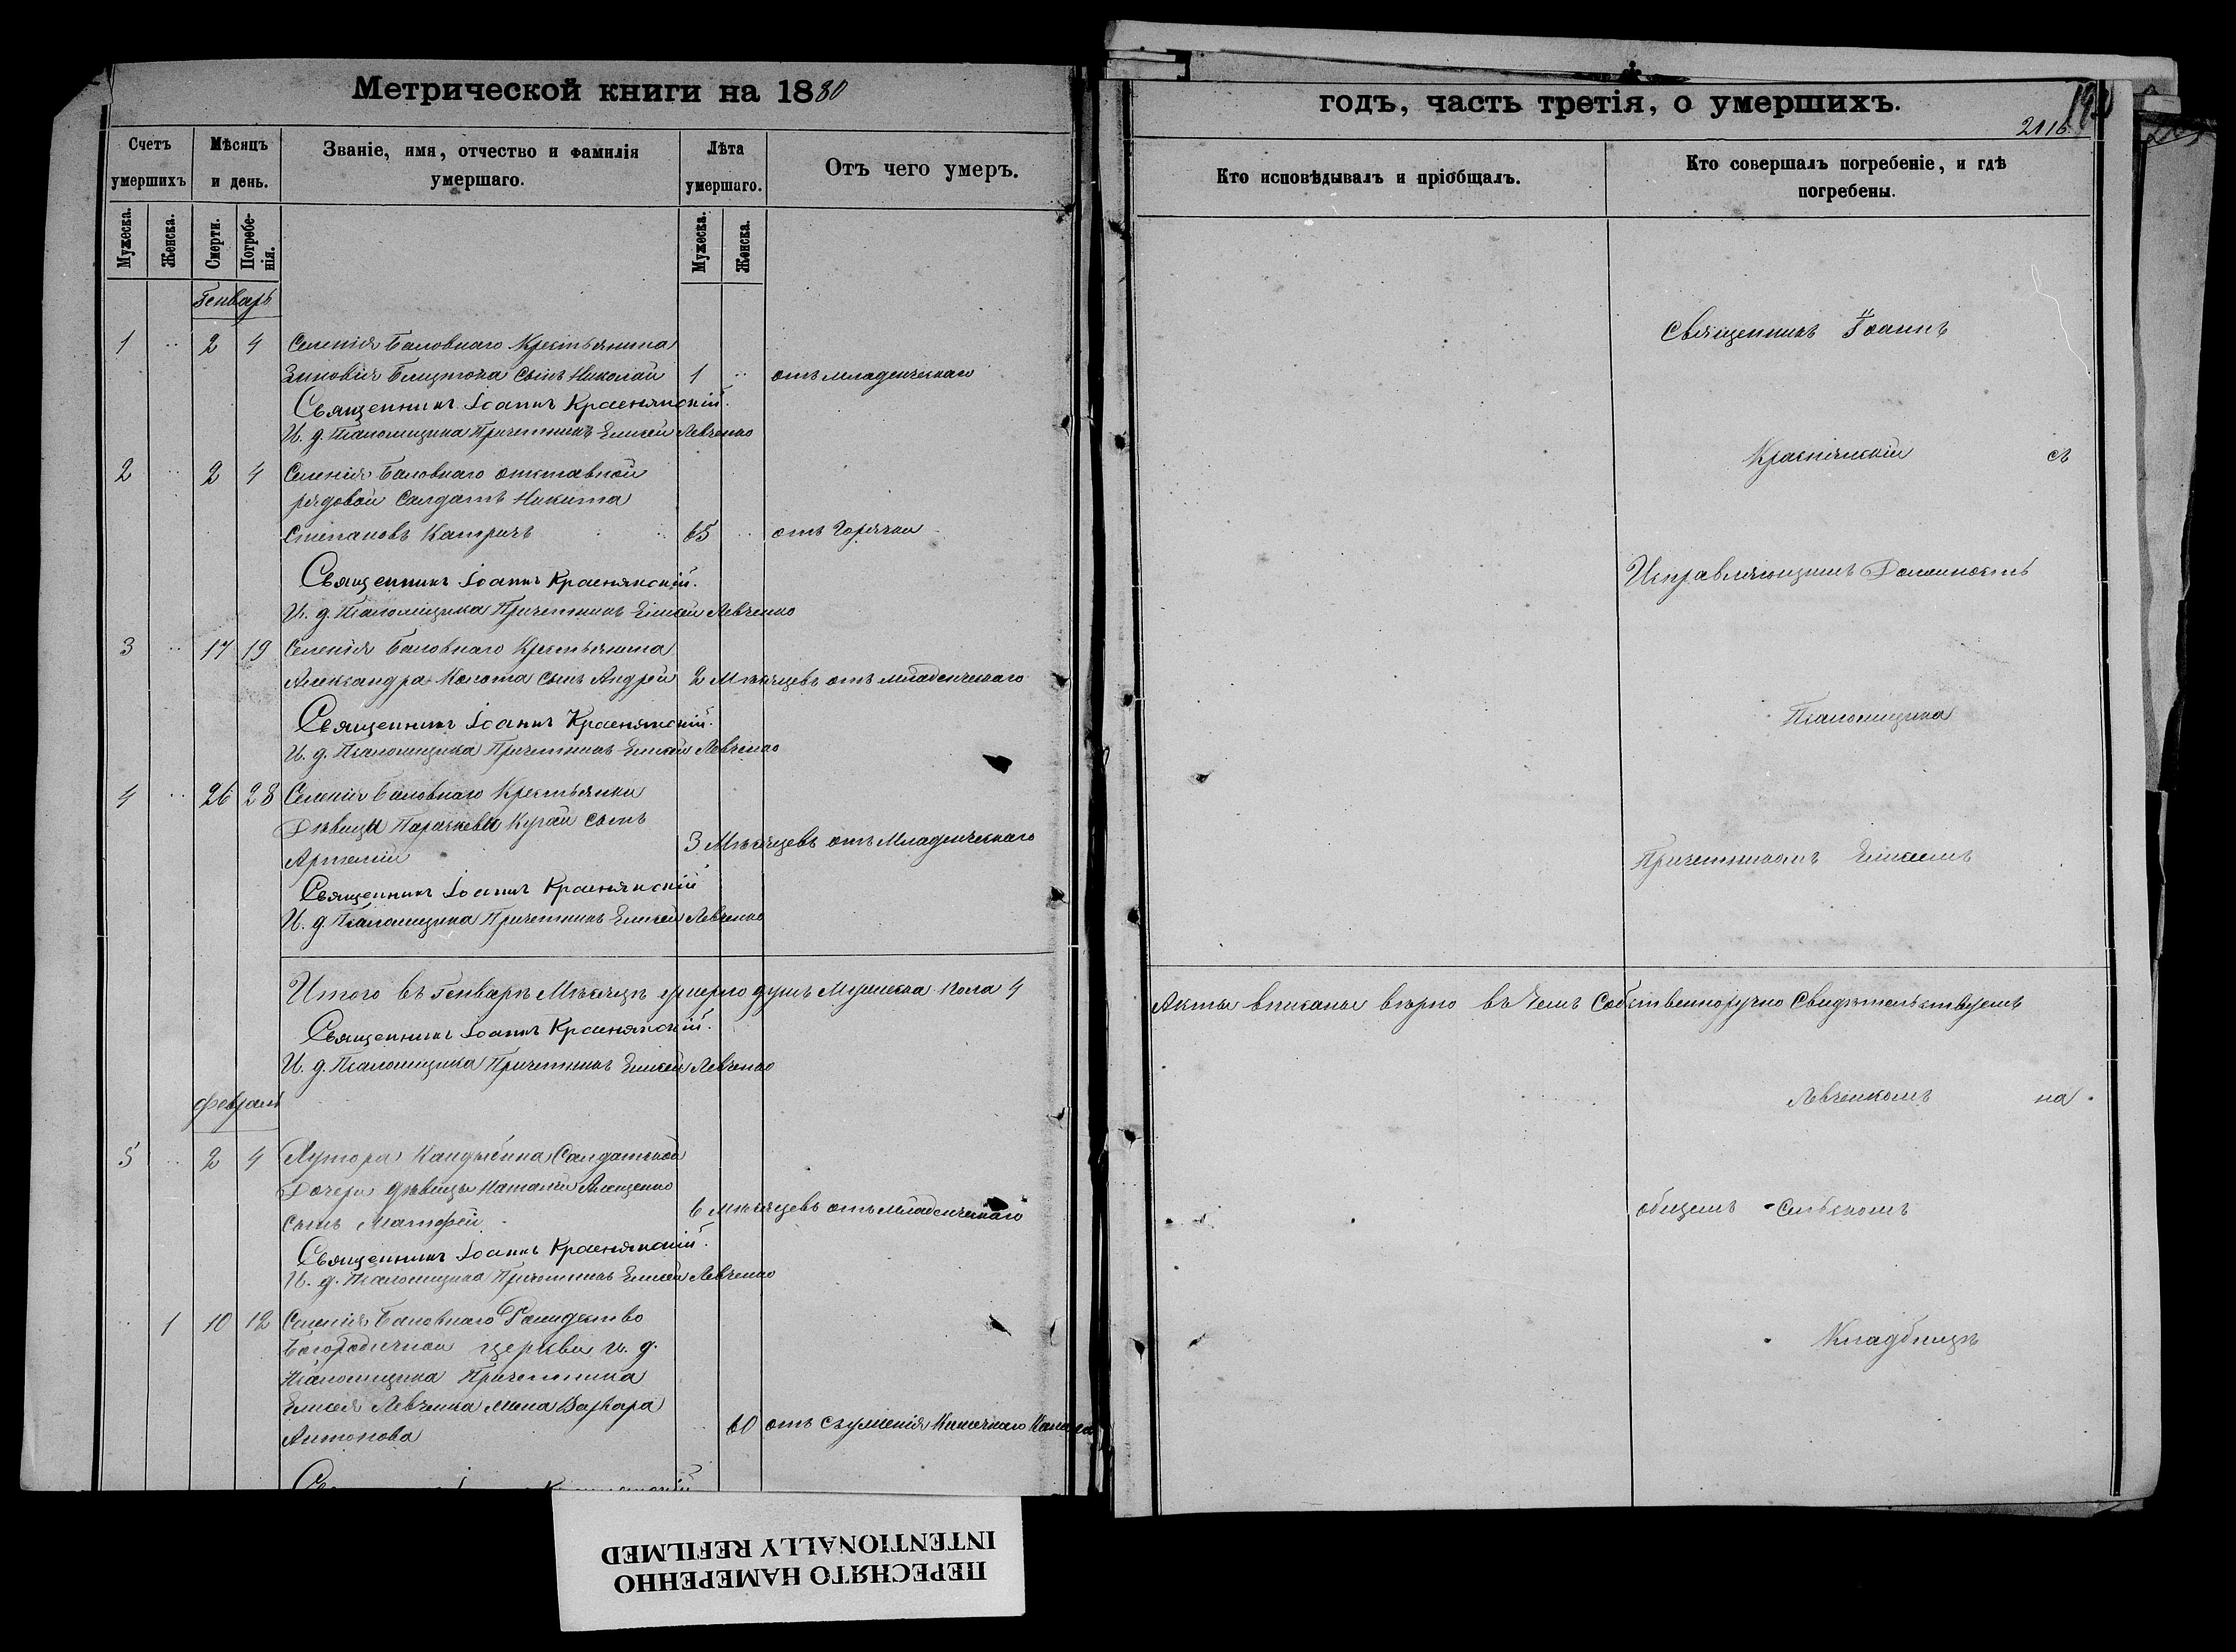 Метрической книги на 1880
Счетъ умершихъ
Мѣсяцъ и день.
Званіе, имя, отчество и фамилія умершаго.
Лѣта умершаго.
Отъ чего умеръ.
Мужеска.
Женска.
Смерти.
Погребе-
нія.
Мужеска.
Женска.
Генварь
1 .. 2 4 Селенія Баловнаго Крестьянина
Зиновія сынъ Николай 1 .. отъ младенческаго
Священникъ Іоаннъ Краснянскій.
И. д. Псаломщика Причетникъ Елисей Левченко
2 .. 2 4 Селенія Баловнаго отставной
рядовой Салдатъ Никита
Степановъ Катричъ 65 .. отъ Горячки
Священникъ Іоаннъ Краснянскій.
И. д. Псаломщика Причетникъ Елисей Левченко
3 .. 17 19 Селенія Баловнаго Крестьянина
Александра Колота сынъ Андрей 2 Мѣсяцевъ отъ младенческаго
Священникъ Іоаннъ Краснянскій.
И. д. Псаломщика Причетникъ Елисей Левченко
4 .. 26 28 Селенія Баловнаго Крестьянки
Дѣвицы Параскевы Кугай сынъ
Артемій 3 Мѣсяцевъ отъ Младенческаго
Священникъ Іоаннъ Краснянскій
И. д. Псаломщика Причетникъ Елисей Левченко
Итого въ Генварѣ Мѣсяцѣ умерло душъ Мужеска пола 4
Священникъ Іоаннъ Краснянскій.
И. д. Псаломщика Причетникъ Елисей Левченко
Февраль
5 .. 2 4 Хутора Кандыбина Салдатской
Дочери дѣвицы Наталіи
сынъ Матфей 6 мѣсяцевъ отъ младенческаго
Священникъ Іоаннъ Краснянскій.
И. д. Псаломщика Причетникъ Елисей Левченко
.. 1 10 12 Селенія Баловнаго Рождество
Богородичной церкви и. д.
Псаломщика Причетника
Елисея Левченка жена Варвара
Антонова .. 60 отъ съуженія Кишечнаго Канала
годъ, часть третія, о умершихъ.
2116
Кто исповѣдывалъ и пріобщалъ.
Кто совершалъ погребеніе, и гдѣ
погребены.
Священникъ Іоаннъ
Краснянскій съ
Исправляющимъ Должность
Псаломщика
Причетникомъ Елисеемъ
Акты вписаны вѣрно въ чемъ Собственноручно Свидѣтельствуемъ
Левченкомъ на
общемъ Сельскомъ
Кладбищѣ
ПЕРЕСНЯТО НАМЕРЕННО
INTENTIONALLY REFILMED